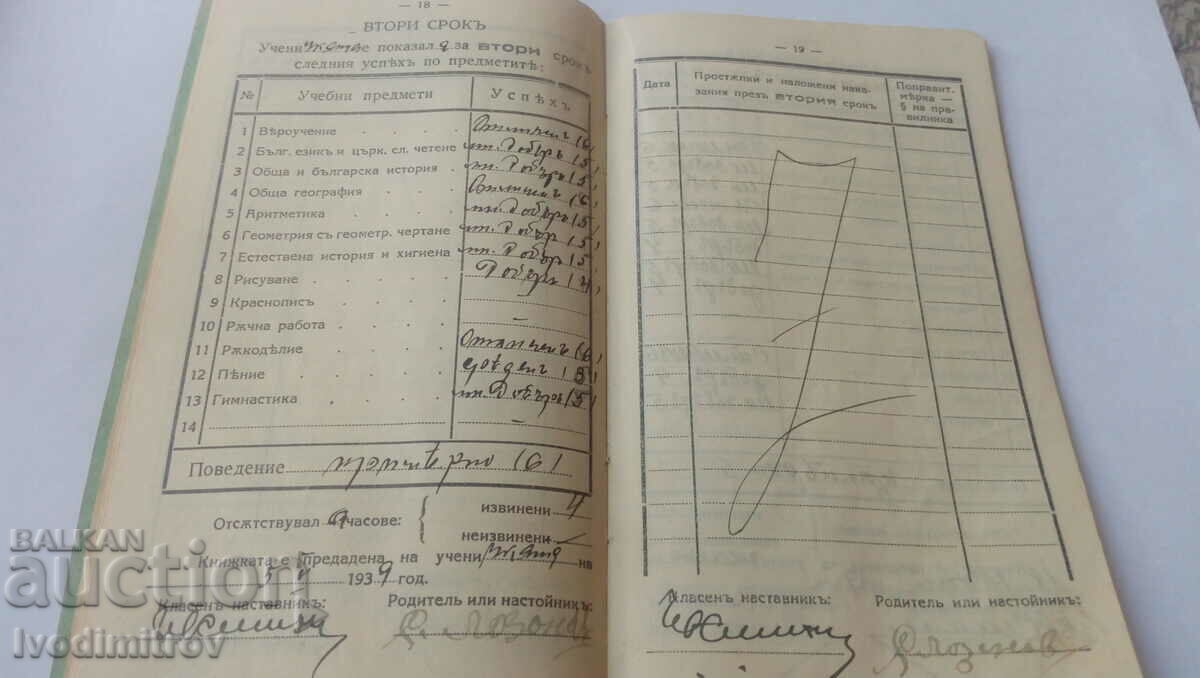 — 18 —
ВТОРИ СРОКЪ
Учени е показал а за ВТОРИ срокъ
следния успѣхъ по предметитѣ:
№ Учебни предмети Успѣхъ
1 Вѣроучение Отличенъ (6)
2 Бълг. езикъ и църк. сл. четене мн. Добъръ (5)
3 Обща и българска история мн. Добъръ (5)
4 Обща география Отличенъ (6)
5 Аритметика мн. Добъръ (5)
6 Геометрия съ геометр. чертане мн. Добър (5)
7 Естествена история и хигиена мн. Добър (5)
8 Рисуване Добъръ (4)
9 Краснописъ
10 Рѫчна работа —
11 Рѫкодѣлие Отличенъ (6)
12 Пѣние срѣденъ (3)
13 Гимнастика мн. Добъръ (5)
14 —
Поведение примѣрно (6)
Отсѫтствувал а часове: извинени 4
неизвинени
Книжката е предадена на учени на
1939 год.
Класенъ наставникъ: Родитель или настойникъ:
— 19 —
Дата Простѫпки и наложени нака-
зания презъ ВТОРИЯ срокъ Поправит.
мѣрка —
§ на пра-
вилника
Класенъ наставникъ: Родитель или настойникъ:
BALKAN
auction
Ivodimitrov